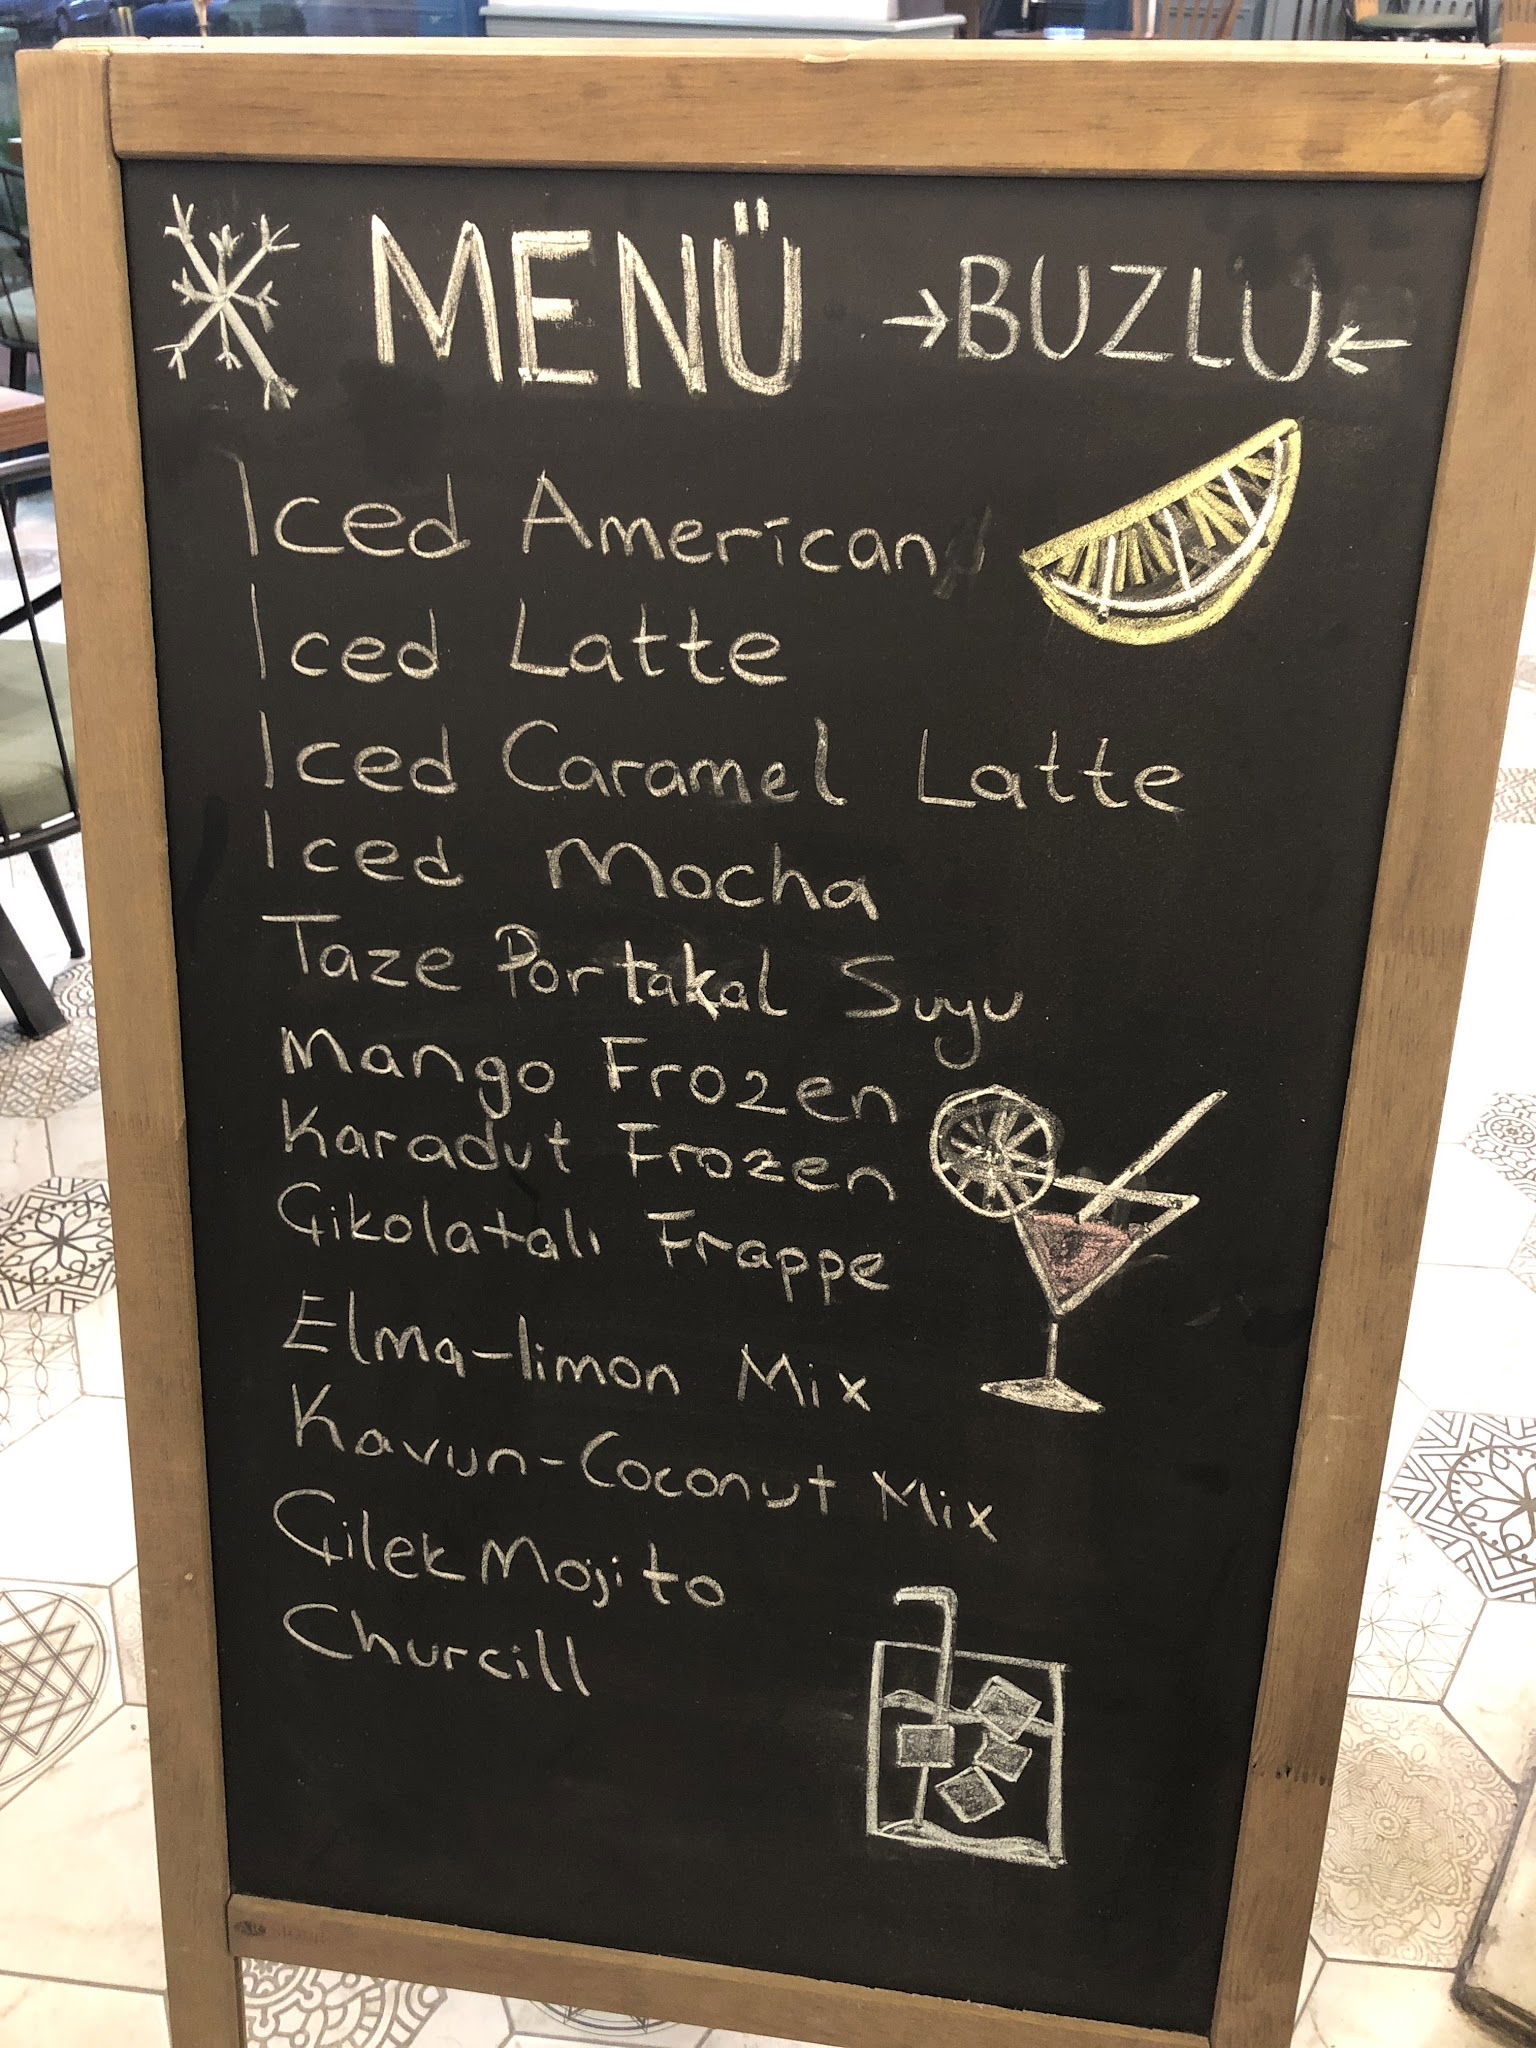 MENÜ →BUZLU←
Iced American
Iced Latte
Iced Caramel Latte
Iced Mocha
Taze Portakal Suyu
Mango Frozen
Karadut Frozen
Çikolatalı Frappe
Elma-limon Mix
Kavun-Coconut Mix
Çilek Mojito
Churcill